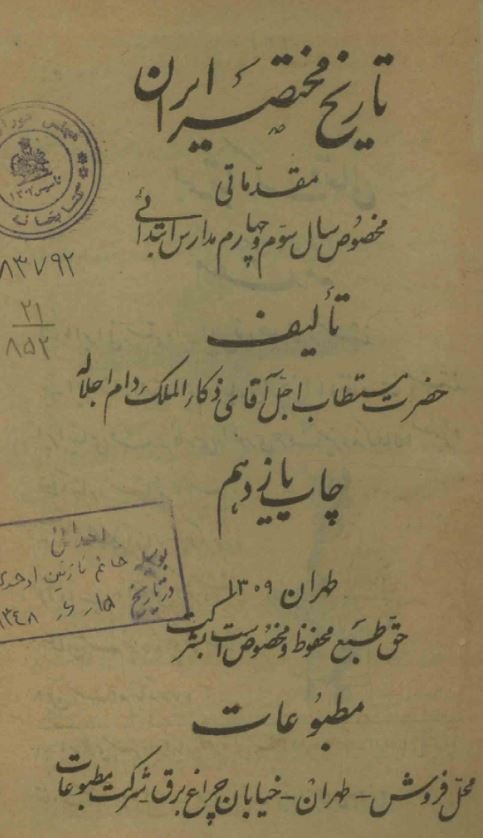 تاریخ مختصر ایران
مقدّماتی
مخصُوص سال سوّم و چهارم مدارس ابتدائی
تألیف
حضرت مستطاب اجلّ آقای ذکاء الملک دام اجلاله
چاپ یازدهم
طهران ۱۳۰۹
حقّ طبع محفوظ و مخصُوص است بشرکت
مطبُوعات
محلّ فروش - طهران - خیابان چراغ برق - شرکت مطبُوعات
مجلس شورای
تأسیس ۱۳۰۲
کتابخانه
۸۳۷۹۲
۲۱
۸۵۲
اهدائی
خانم نازنین
در تاریخ
۱۳۴۸